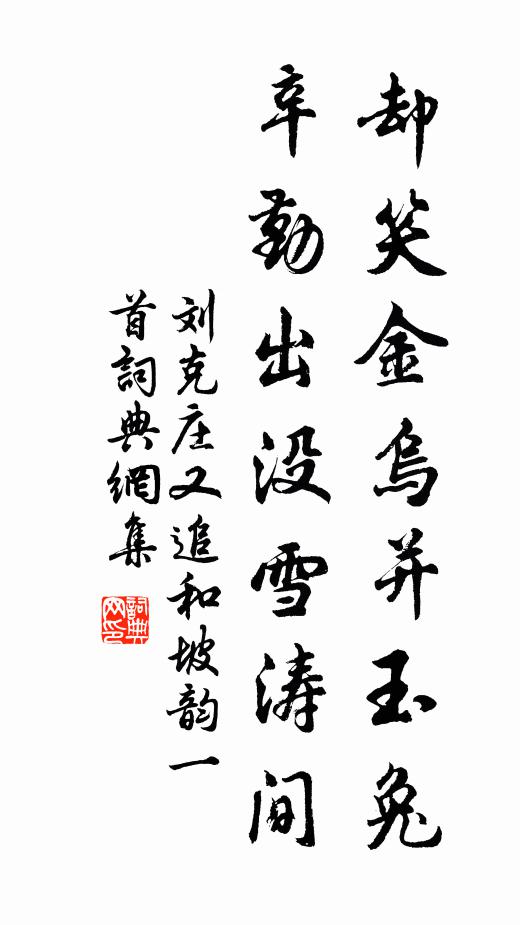 却笑金烏并玉兔
辛勤出没雪涛间
刘克庄又追和坡韵一
首詞典網集
詞典网印